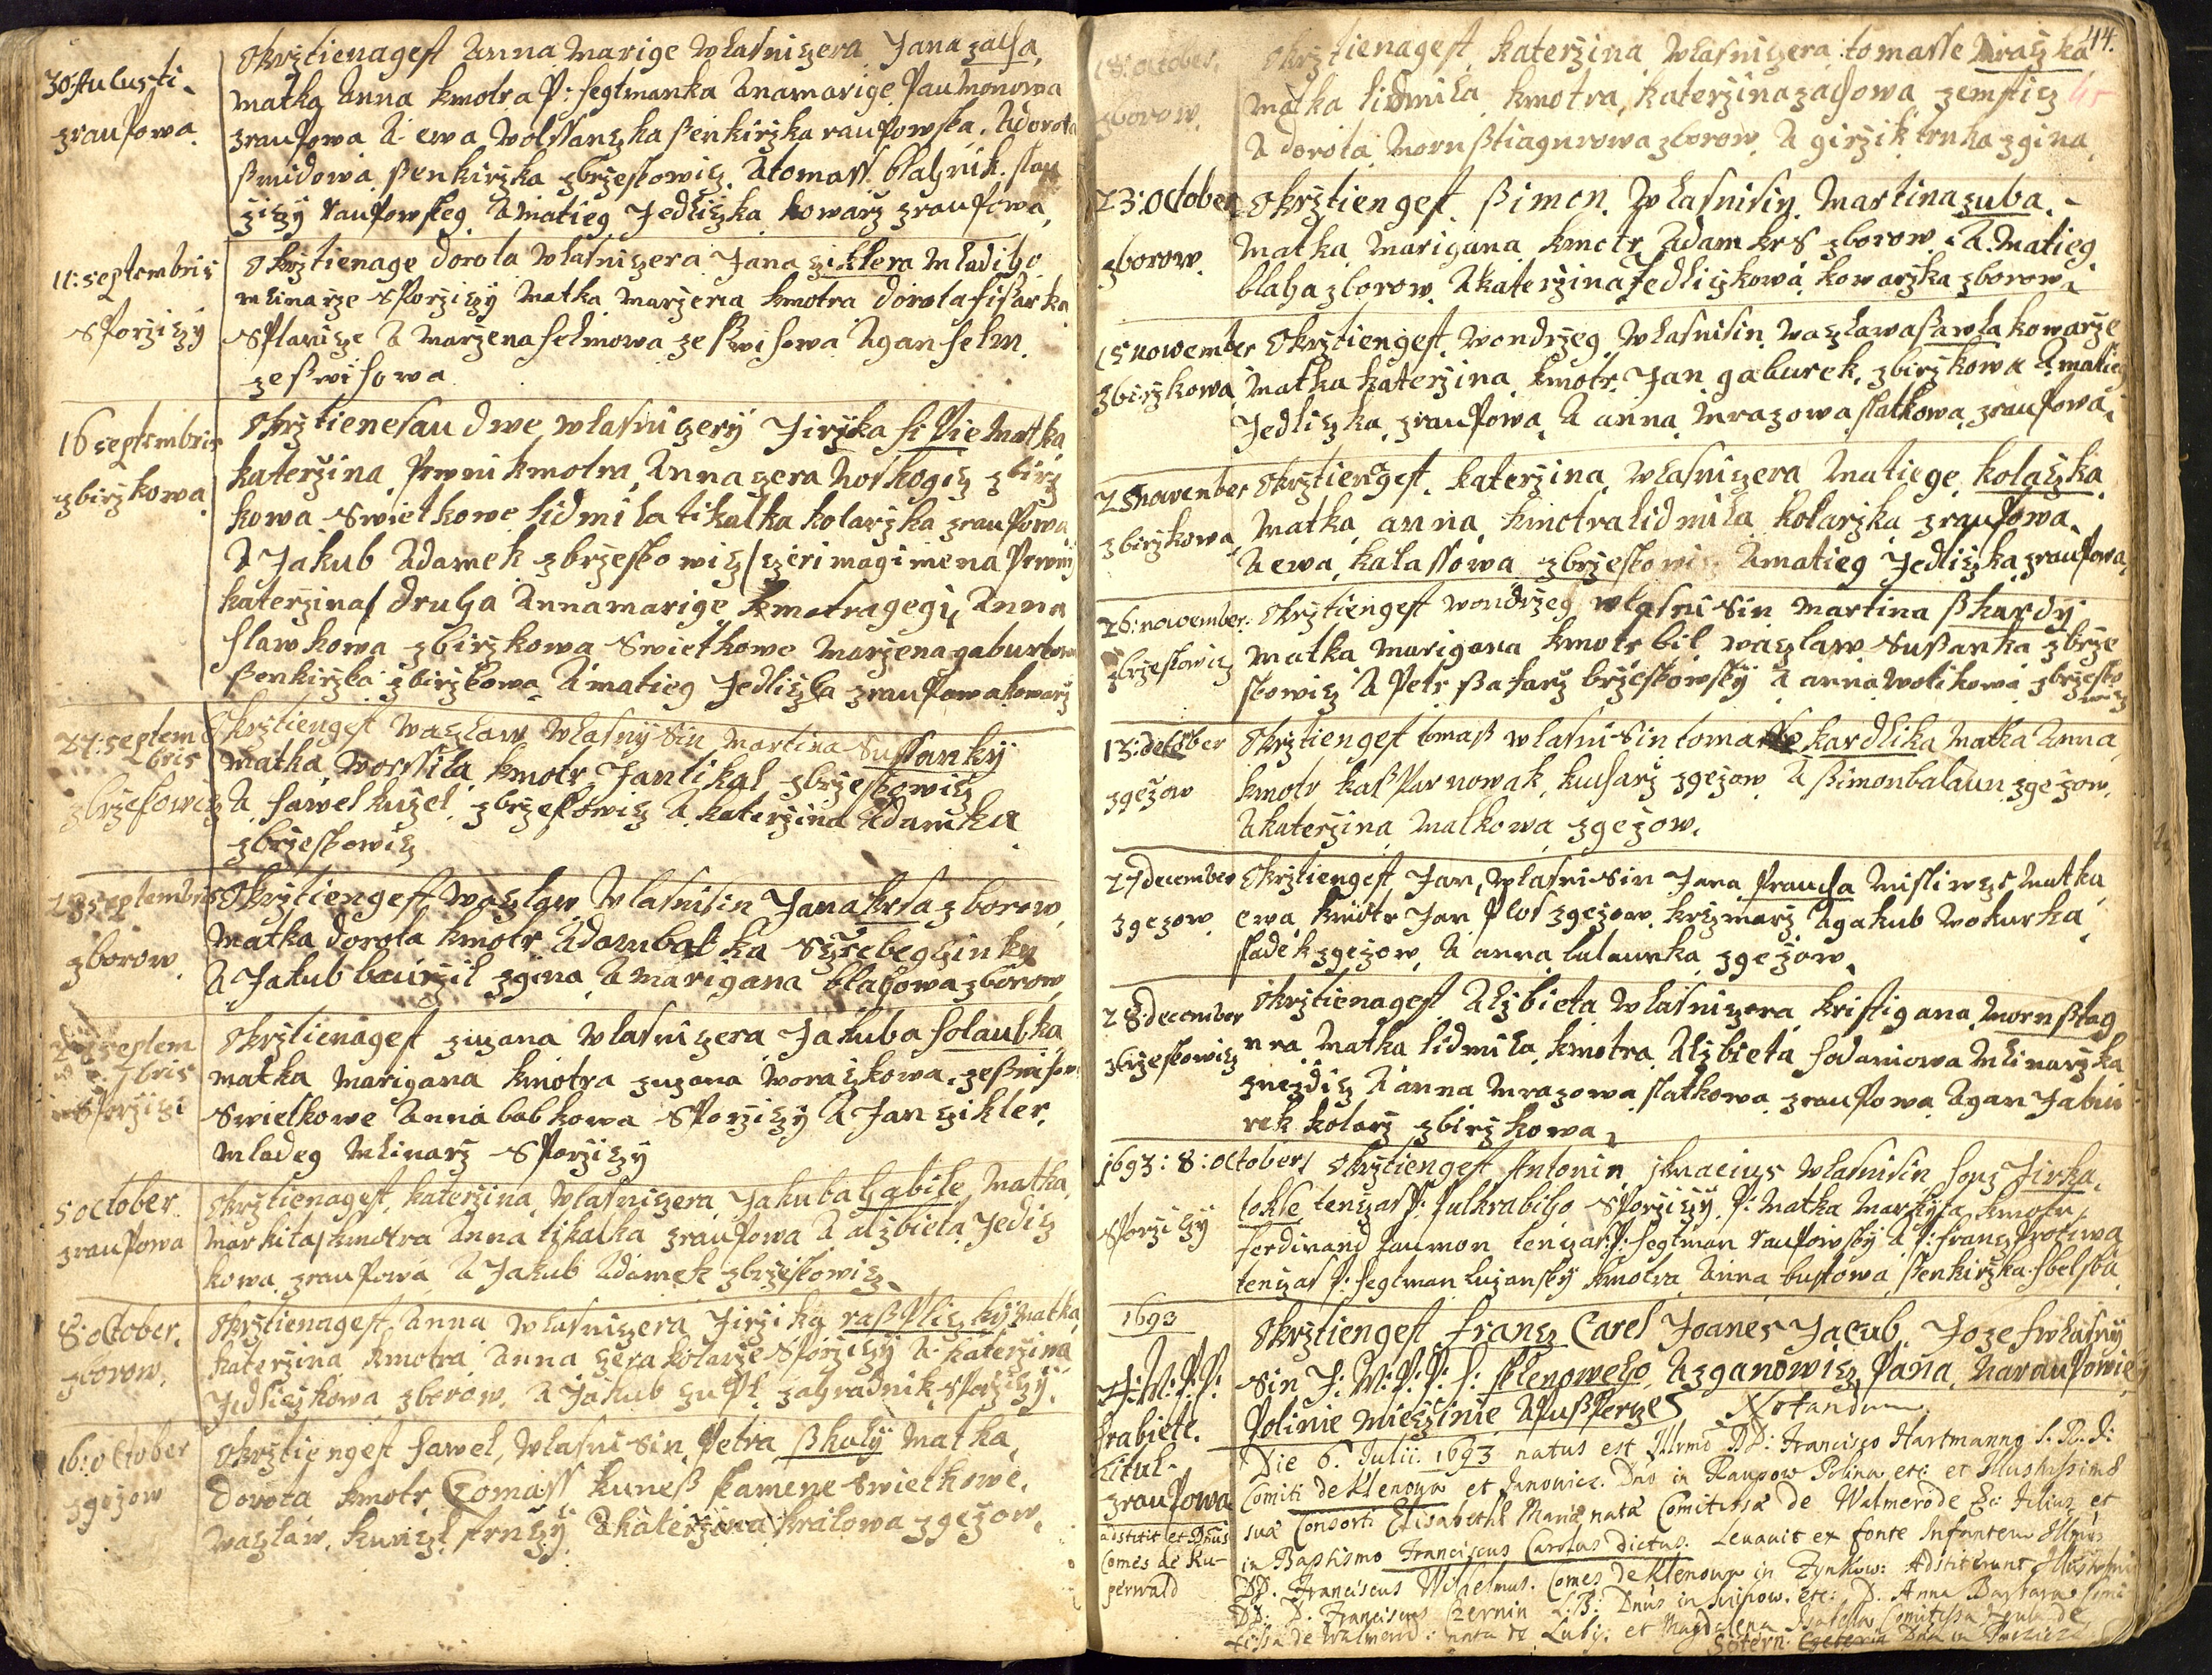 30 Augusti
z raupowa
okrztiena gest Anna Marige wlasni czera Jana zacha
matka Anna kmotra P: hegtmanka Anamarige Paumonowa
z raupowa A ewa wolssanzka ßenkirzka raupowska, A dorota
ßmidowa ßenkirzka z brzeskowicz, A tomass blaznik
raupowskeg A matieg Jedliczka kowarz z raupowa
11: septembris
s Porziczy
okrztiena ge dorota wlasni czera Jana ziklera mladiho
mlinarze s Porziczy matka marzena kmotra dorota fißarka
s Planicze A Marzena helmowa ze ßwihowa A gan helm
ze ßwihowa
16 septembris
z birzkowa
okrztiene sau dwe wlasni czery Jirzika hi Pie matka
katerzina Prwni kmotra Anna zera z birz
kowa swietkowe lidmila tikalka kolarzka z raupowa
A Jakub Adamek z brzeskowicz / czeri magi mena Prwni
katerzina / druha Anna marige kmotra gegi Anna
slawkowa z birzkowa swietkowe Marzena gaburkowa
ßenkirzka z birzkowa A matieg Jedliczka z raupowa kowarz
27: septem
bris
z brzeskowicz
okrztien gest waczlaw wlasny sin Martina Sussanky
matka worssila kmotr Jan tikal z brzeskowicz
A hawel kuzel z brzeskowicz A katerzina Adamka
z brzeskowicz
septembris
z borow
okrztien gest waczlaw wlasni sin Jana krsa z borow
Matka dorota kmotr Adam batka
A Jakub baurzil z gina A marigana blahowa z borow
septem
bris
s Porzizi
okrztiena gest zuzana wlasni czera Jakuba holaubka
matka Marigana kmotra zuzana worackowa ze ßwihow
swietkowe Anna babkowa s Porziczy A Jan zikler
mladeg Mlinarz s Porziczy
5 october
z raupowa
okrztiena gest katerzina wlasni czera Jakuba habile Matka
Markita / kmotra Anna tikalka z raupowa A alzbieta Jedlicz
kowa z raupowa A Jakub Adamek z brzeskowicz
8: october
z borow
okrztiena gest Anna wlasni czera Jirzika raßPliczky Matka
katerzina kmotra Anna czera kolarze s Porziczy A katerzina
Jedliczkowa z borow A Jakub zahradnik s Porziczy
16: october
z gezow
okrztien gest hawel, wlasni sin Petra ßkaly Matka
dorota kmotr Tomass kuneß kamene swietkowe
waczlaw A katerzina kralowa z gezow
44.
45
18: october
z borow
okrztiena gest katerzina wlasni czera tomasse Mraczka
matka lidmila kmotra katerzina zachowa
A dorota Mornßtiagnrowa z borow A girzik trnka z gina
23: october
z borow
okrztien gest ßimon wlasni sin Martina zuba
Matka Marigana kmotr Adam krs z borow A Matieg
blaha z borow A katerzina Jedliczkowa kowarzka z borow
15 nowember
z birzkowa
okrztien gest wondrzeg wlasni sin waczlawa ßawla kowarze
Matka katerzina kmotr Jan gaburek z birzkowa A matieg
Jedliczka z raupowa A anna Mrazowa slatkowa z raupowa
25 nowember
z birzkowa
okrztien gest katerzina wlasni czera Matiege kolaczka
Matka anna kmotra lidmila kolarzka z raupowa
A ewa kalassowa z brzeskowicz A matieg Jedliczka z raupowa
26: nowember
z brzeskowicz
okrztien gest wondrzeg wlasni sin Martina ßkardy
Matka Marigana kmotr bil waczlaw Sußanka z brze
skowicz A Petr ßafarz brzeskowsky A anna wotikowa z brzesko
wicz
13: december
z gezow
okrztien gest tomaß wlasni sin tomasse kardlika Matka Anna
kmotr kaßPar nowak, kucharz z gezow A ßimon balaun z gezow
A katerzina Malkowa z gezow
27 december
z gezow
okrztien gest Jan, wlasni sin Jana Praucha Misliwcze Matka
ewa kmotr Jan Plos z gezow krczmarz A Jakub wokurka
sladek z gezow A anna balaunka z gezow
28: december
z brzeskowicz
okrztiena gest Alzbieta wlasni czera kristigana Mornßtag
nra Matka lidmila kmotra Alzbieta hodaniowa Mlinarzka
z nezdicz A anna Mrazowa slatkowa z raupowa A gan Jabu
rek kolarz z birzkowa
1693: 8: october /
s Porziczy
okrztien gest Antonin iknacius wlasni sin honz Jirka
tokle tenczas P: Pulkrabiho s Porziczy P: Matka Markyta kmotr /
ferdinand Paumon tenczas P: hegtman raupowsky A P: franz Protiwa
tenczas P: hegtman luzansky kmotra Anna bustowa ßenkirzka
1693
J: W: P: P:
hrabiete
titul
z raupowa
adstitit et Dnus
Comes de Ku-
perwald
okrztien gest franz Carel Joanes Jacub Jozef wlasny
sin J: W: P: P: h: klenoweho A z ganowicz Pana na raupowie
Polinie Mieczinie A Pußperze Notandum
Die 6. Julii 1693 natus est Illmo DD: Francisco Hartmanno S. R. I:
Comiti de Klenowa et Janowicz. Dno in Raupow Polina etc: et Illustrissima
sua Consorti Elisabetha Maria nata Comitissa de Walmerode Filius et
in Baptismo Franciscus Carolus dictus. Levavit ex fonte Infantem Illmus
DD. Franciscus Wilhelmus. Comes de Klenowa in Zynkow: Adstiterunt Illustrissimi
DD. D. Franciscus Czernin L: B: Dnus in etc: D. Anna Barbara Comi
tissa de Walmerod: nata de Lubj: et Magdalena Isabella Comitissa de
Sötern